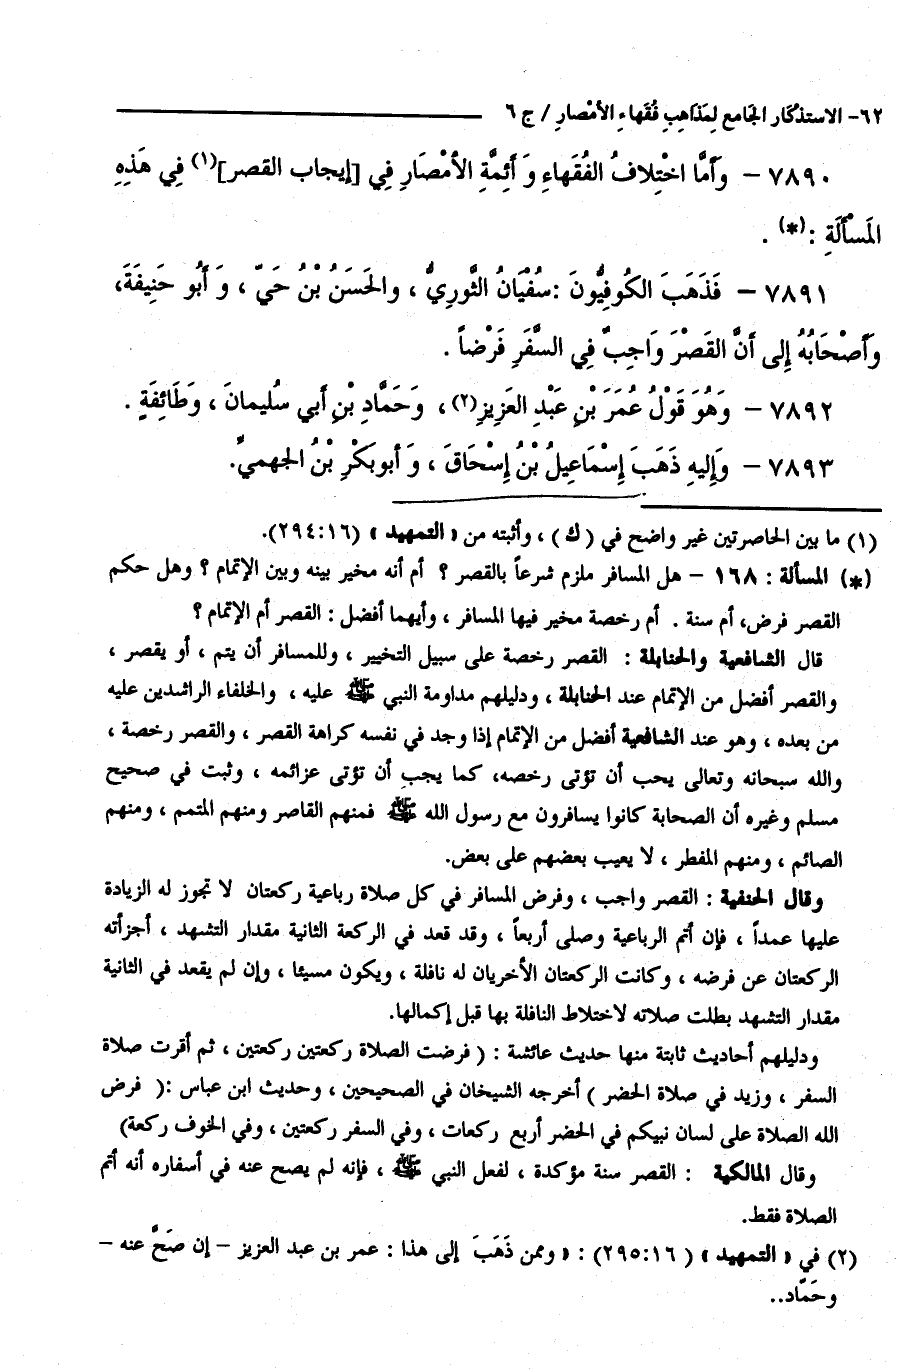 ٦٢- الاستذكار الجامع لِمَذَاهِبِ فُقَهاءِ الأمْصارِ / ج ٦
٧٨٩٠ – وَأَمَّا اخْتِلافُ الفُقَهاءِ وَ أَئِمَّةِ الأَمْصَارِ فِي [إيجاب القصر](١) فِي هَذِهِ
المَسْأَلَةِ :(*) .
٧٨٩١ – فَذَهَبَ الكُوفِيُّونَ :سُفْيَانُ الثَّورِيُّ ، والحَسَنُ بْنُ حَيّ ، وَ أَبُو حَنِيفَةَ،
وَأَصْحَابُهُ إلى أَنَّ القَصْرَ وَاجِبٌ فِي السَّفَرِ فَرْضاً .
٧٨٩٢ – وَهُوَ قَوْلُ عُمَرَ بْنِ عَبْدِ العَزِيزِ(٢)، وَحَمَّادِ بْنِ أَبي سُليمانَ ، وَطَائِفَةٍ .
٧٨٩٣ – وَإِليهِ ذَهَبَ إِسْمَاعِيلُ بْنُ إِسْحَاقَ ، وَ أَبوبَكْرِ بْنُ الجهميِّ.
(١) ما بين الحاصرتين غير واضح في ( ك ) ، وأثبته من « التمهيد » (٢٩٤:١٦).
(*) المسألة : ١٦٨ – هل المسافر ملزم شرعاً بالقصر ؟ أم أنه مخير بينه وبين الإتمام ؟ وهل حكم
القصر فرض، أم سنة . أم رخصة مخير فيها المسافر ، وأيهما أفضل : القصر أم الإتمام ؟
قال الشافعية والحنابلة : القصر رخصة على سبيل التخيير ، وللمسافر أن يتم ، أو يقصر ،
والقصر أفضل من الإتمام عند الحنابلة ، ودليلهم مداومة النبي ﷺ عليه ، والخلفاء الراشدين عليه
من بعده ، وهو عند الشافعية أفضل من الإتمام إذا وجد في نفسه كراهة القصر ، والقصر رخصة ،
والله سبحانه وتعالى يحب أن تؤتى رخصه، كما يجب أن تؤتى عزائمه ، وثبت في صحيح
مسلم وغيره أن الصحابة كانوا يسافرون مع رسول الله ﷺ فمنهم القاصر ومنهم المتمم ، ومنهم
الصائم ، ومنهم المفطر ، لا يعيب بعضهم على بعض.
وقال الحنفية : القصر واجب ، وفرض المسافر في كل صلاة رباعية ركعتان لا تجوز له الزيادة
عليها عمداً ، فإن أتم الرباعية وصلى أربعاً ، وقد قعد في الركعة الثانية مقدار التشهد ، أجزأته
الركعتان عن فرضه ، وكانت الركعتان الأخريان له نافلة ، ويكون مسيئا ، وإن لم يقعد في الثانية
مقدار التشهد بطلت صلاته لاختلاط النافلة بها قبل إكمالها.
ودليلهم أحاديث ثابتة منها حديث عائشة : ( فرضت الصلاة ركعتين ركعتين ، ثم أقرت صلاة
السفر ، وزيد في صلاة الحضر ) أخرجه الشيخان في الصحيحين ، وحديث ابن عباس :( فرض
الله الصلاة على لسان نبيكم في الحضر أربع ركعات ، وفي السفر ركعتين ، وفي الخوف ركعة)
وقال المالكية : القصر سنة مؤكدة ، لفعل النبي ﷺ ، فإنه لم يصح عنه في أسفاره أنه أتم
الصلاة فقط.
(٢) في « التمهيد » ( ٢٩٥:١٦) : « وممن ذَهَبَ إلى هذا : عمر بن عبد العزيز – إن صَحَّ عنه –
وحَمَّاد..